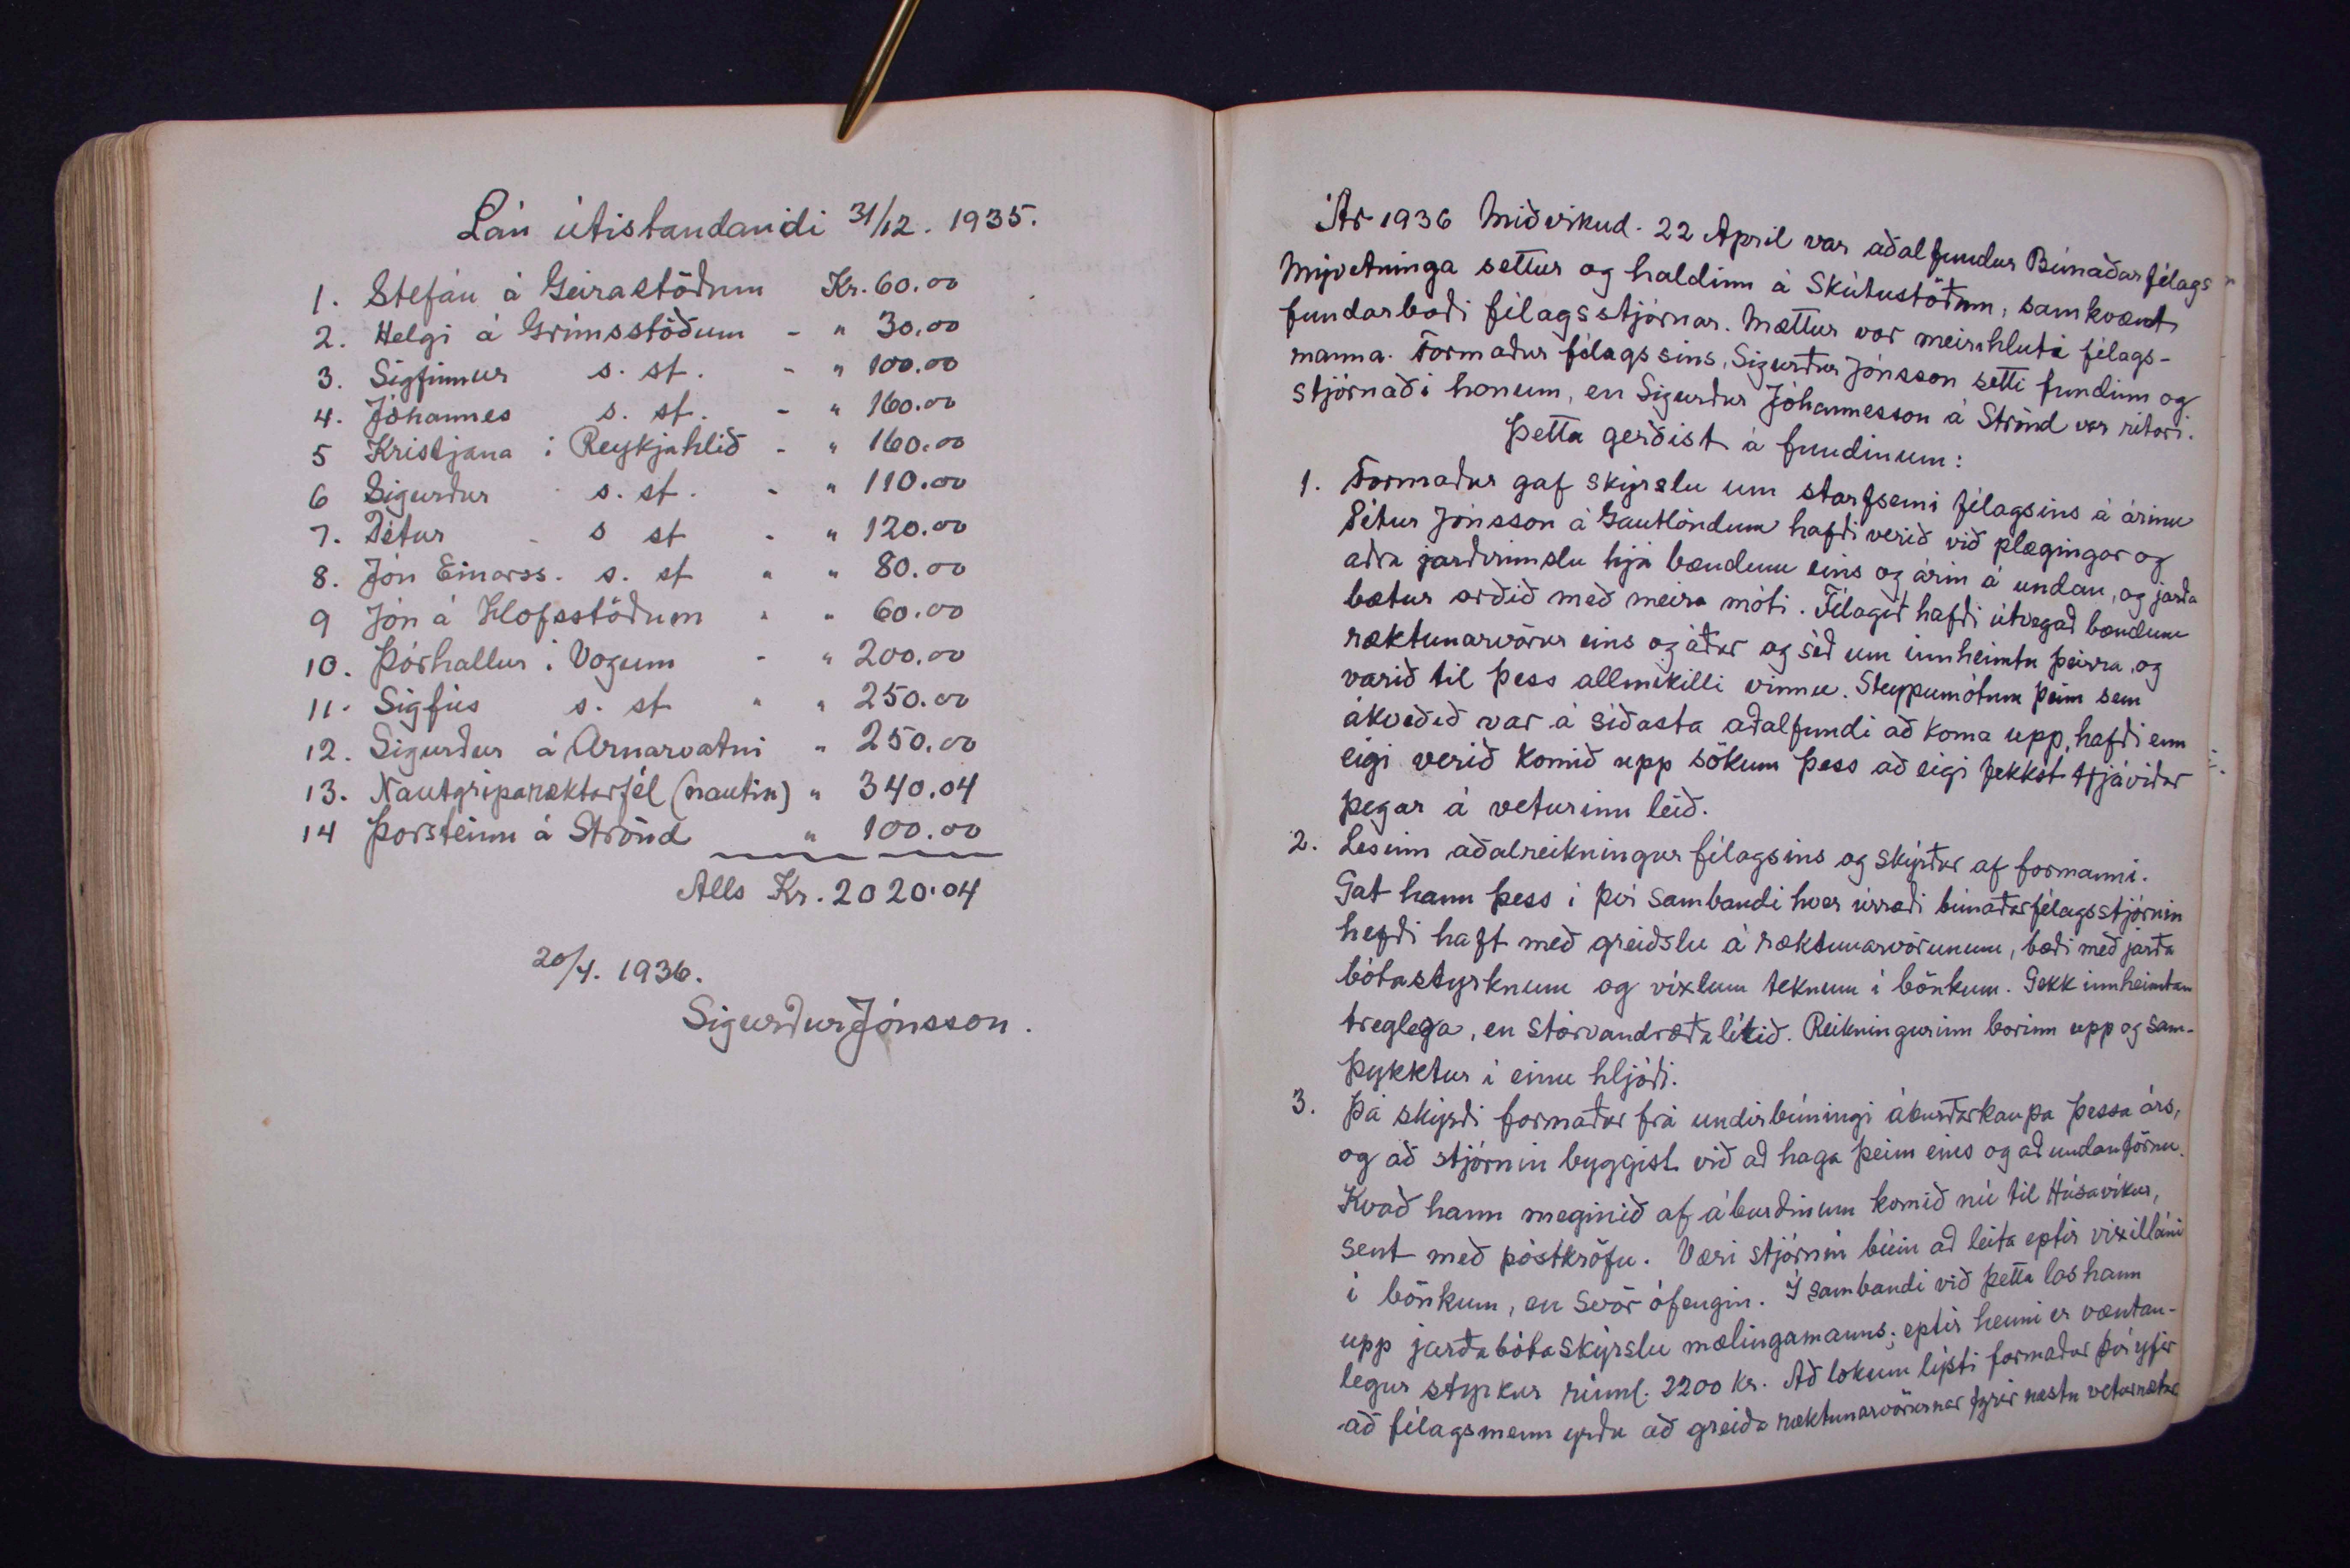 Lán útistandandi 31/12. 1935.
1. Stefán á Geirastöðum Kr. 60.00
2. Helgi á Grímsstöðum - " 30.00
3. Sigfinnur s. st. - " 100.00
4. Jóhannes s. st. - " 160.00
5 Kristjana í Reykjahlíð - " 160.00
6 Sigurður s. st. - " 110.00
7. Pétur s st - " 120.00
8. Jón Einarss. s. st " " 80.00
9 Jón á Hofsstöðum " " 60.00
10. Þórhallur í Vogum - " 200.00
11. Sigfús s. st " " 250.00
12. Sigurður á Arnarvatni " 250.00
13. Nautgriparæktarfél (nautin) " 340.04
14 Þorsteinn á Strönd " 100.00
Alls Kr. 2020.04
20/4. 1936.
Sigurður Jónsson.
Ár 1936 Miðvikud. 22 April var aðalfundur Búnaðarfélags
Mývetninga settur og haldinn á Skútustöðum, samkvæmt
fundarboði félagsstjórnar. Mættur var meirihluti félags-
manna. Formaður félagssins, Sigurður Jónsson setti fundinn og
stjórnaði honum, en Sigurður Jóhannesson á Strönd var ritari.
Þetta gerðist á fundinum:
1. Formaður gaf skýrslu um starfsemi félagsins á árinu
Pétur Jónsson á Gautlöndum hafði verið við plægingar og
aðra jarðvinnslu hjá bændum eins og árin á undan, og jarða
bætur orðið með meira móti. Félagið hafði útvegað bændum
ræktunarvörur eins og áður og séð um innheimtu þeirra, og
varið til þess allmikilli vinnu. Steypumótum þeim sem
ákveðið var á síðasta aðalfundi að koma upp, hafði enn
eigi verið komið upp sökum þess að eigi fekkst trjáviður
þegar á veturinn leið.
2. Lesinn aðalreikningur félagsins og skýrður af formanni.
Gat hann þess í því sambandi hver úrræði búnaðarfélagsstjórnin
hefði haft með greiðslu á ræktunarvörunum, bæði með jarða
bótastyrknum og víxlum teknum í bönkum. Gekk innheimtan
treglega, en stórvandræða lítið. Reikningurinn borinn upp og sam-
þykktur í einu hljóði.
3. Þá skýrði formaður frá undirbúningi áburðarkaupa þessa árs,
og að stjórnin byggist við að haga þeim eins og að undanförnu.
Kvað hann meginið af áburðinum komið nú til Húsavíkur,
sent með póstkröfu. Væri stjórnin búin að leita eptir víxilláni
í bönkum, en svör ófengin. Í sambandi við þetta las hann
upp jarðabótaskýrslu mælingamanns; eptir henni er væntan-
legur styrkur rúml. 2200 kr. Að lokum lýsti formaður því yfir
að félagsmenn yrðu að greiða ræktunarvörurnar fyrir næstu veturnætur